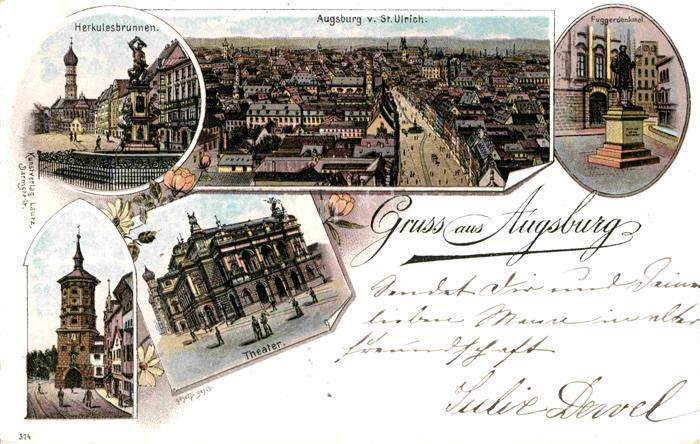 Herkulesbrunnen.
Augsburg v. St. Ulrich.
Fuggerdenkmal.
Kunstverlag Lautz,
Darmstadt.
Gruss aus Augsburg
Theater.
gesetzl. gesch.
Sendet Dir und Deiner
lieben in alter
Freundschaft
Julie
374